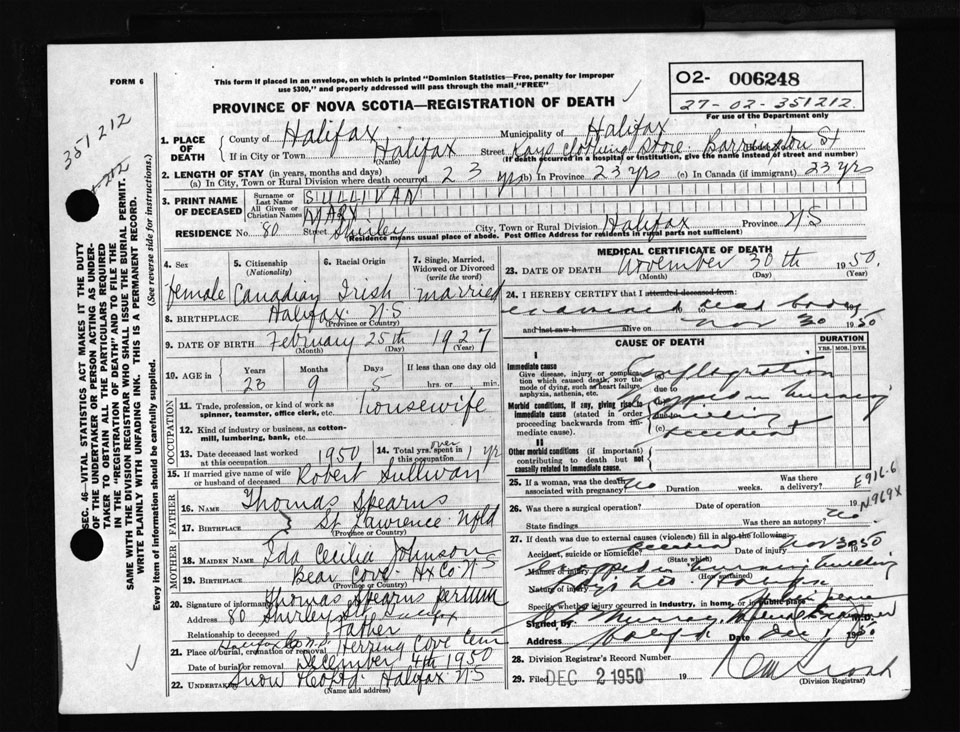 FORM 6
This form if placed in an envelope, on which is printed "Dominion Statistics—Free, penalty for improper
use $300," and properly addressed will pass through the mail "FREE"
O2- 006248
27-02-351212.
For use of the Department only
PROVINCE OF NOVA SCOTIA—REGISTRATION OF DEATH
351212
SEC. 46—VITAL STATISTICS ACT MAKES IT THE DUTY
OF THE UNDERTAKER OR PERSON ACTING AS UNDER-
TAKER TO OBTAIN ALL THE PARTICULARS REQUIRED
IN THE "REGISTRATION OF DEATH" AND TO FILE THE
SAME WITH THE DIVISION REGISTRAR WHO SHALL ISSUE THE BURIAL PERMIT.
WRITE PLAINLY WITH UNFADING INK. THIS IS A PERMANENT RECORD.
Every item of information should be carefully supplied. (See reverse side for instructions.)
1. PLACE OF DEATH
County of Halifax Municipality of Halifax
If in City or Town Halifax Street Kays Clothing Store Barrington St
(Name) (If death occurred in a hospital or institution, give the name instead of street and number)
2. LENGTH OF STAY (in years, months and days)
(a) In City, Town or Rural Division where death occurred 23 yrs (b) In Province 23 yrs (c) In Canada (if immigrant) 23 yrs
3. PRINT NAME OF DECEASED
Surname or Last Name SULLIVAN
All Given or Christian Names MARY
RESIDENCE No. 80 Street Shirley City, Town or Rural Division Halifax Province NS
(Residence means usual place of abode. Post Office Address for residents in rural parts not sufficient)
4. Sex female
5. Citizenship (Nationality) Canadian
6. Racial Origin Irish
7. Single, Married, Widowed or Divorced (write the word) married
8. BIRTHPLACE Halifax N.S
(Province or Country)
9. DATE OF BIRTH February 25th 1927
(Month) (Day) (Year)
10. AGE in Years Months Days If less than one day old
23 9 5 hrs. or min.
OCCUPATION
11. Trade, profession, or kind of work as spinner, teamster, office clerk, etc. Housewife
12. Kind of industry or business, as cotton-mill, lumbering, bank, etc.
13. Date deceased last worked at this occupation 1950
14. Total yrs. spent in this occupation over 1 yr
15. If married give name of wife or husband of deceased Robert Sullivan
FATHER
16. NAME Thomas Stearns
17. BIRTHPLACE St Lawrence Nfld
(Province or Country)
MOTHER
18. MAIDEN NAME Ida Cecilia Johnson
19. BIRTHPLACE Bear Cove Hx Co N S
(Province or Country)
20. Signature of informant Thomas Stearns
Address 80 Shirley St Halifax
Relationship to deceased Father
21. Place of burial, cremation or removal Herring Cove Cem
Halifax Co N.S
Date of burial or removal December 4th 1950
22. Undertaker Snow Halifax N S
(Name and address)
MEDICAL CERTIFICATE OF DEATH
23. DATE OF DEATH November 30th 1950
(Month) (Day) (Year)
24. I HEREBY CERTIFY that I attended deceased from:
examined to dead body
and last saw h alive on Nov 30 1950
CAUSE OF DEATH
DURATION
YRS. MOS. DYS.
I
Immediate cause
Give disease, injury or complication which caused death, NOT the mode of dying, such as heart failure, asphyxia, asthenia, etc.
(a) Conflagration
due to
Morbid conditions, if any, giving rise to immediate cause (stated in order proceeding backwards from immediate cause).
(b) Trapped in burning
due to building
(c) Accident
II
Other morbid conditions (if important) contributing to death but not causally related to immediate cause.
25. If a woman, was the death associated with pregnancy? No Duration weeks. Was there a delivery?
E916-6
N969X
26. Was there a surgical operation? Date of operation
State findings Was there an autopsy? No
27. If death was due to external causes (violence) fill in also the following:
Accident, suicide or homicide? Accident Date of injury Nov 30 50
(State which)
Manner of injury Trapped in burning building
(How sustained)
Nature of injury Halifax
Specify whether injury occurred in industry, in home, or in public place
Signed by Murray M.D.
Address Halifax Date Dec 1 1950
28. Division Registrar's Record Number
29. Filed DEC 2 1950 19
(Division Registrar)